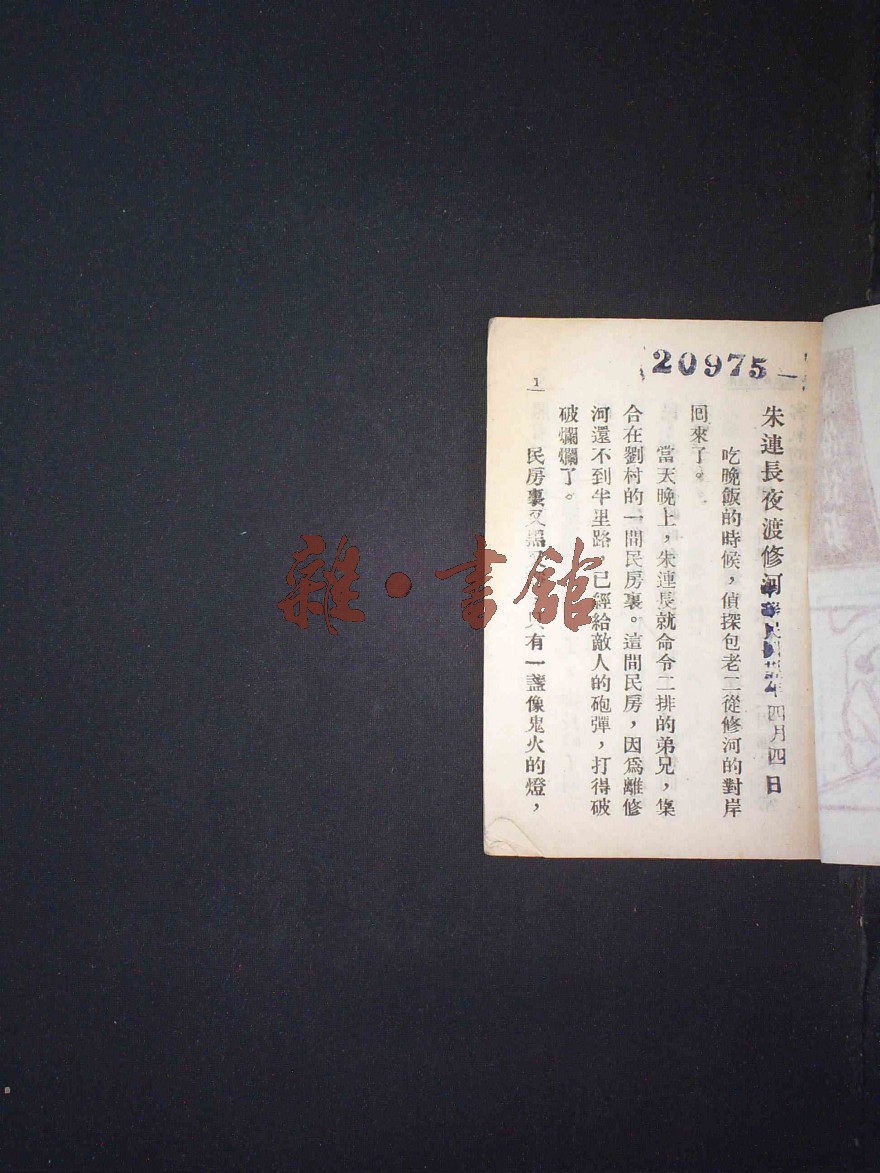 20975
朱連長夜渡修河
民國 年四月四日
吃晚飯的時候，偵探包老二從修河的對岸
囘來了。
當天晚上，朱連長就命令二排的弟兄，集
合在劉村的一間民房裏。這間民房，因爲離修
河還不到半里路，已經給敵人的砲彈，打得破
破爛爛了。
民房裏又黑 只有一盞像鬼火的燈，
1
雜·書館